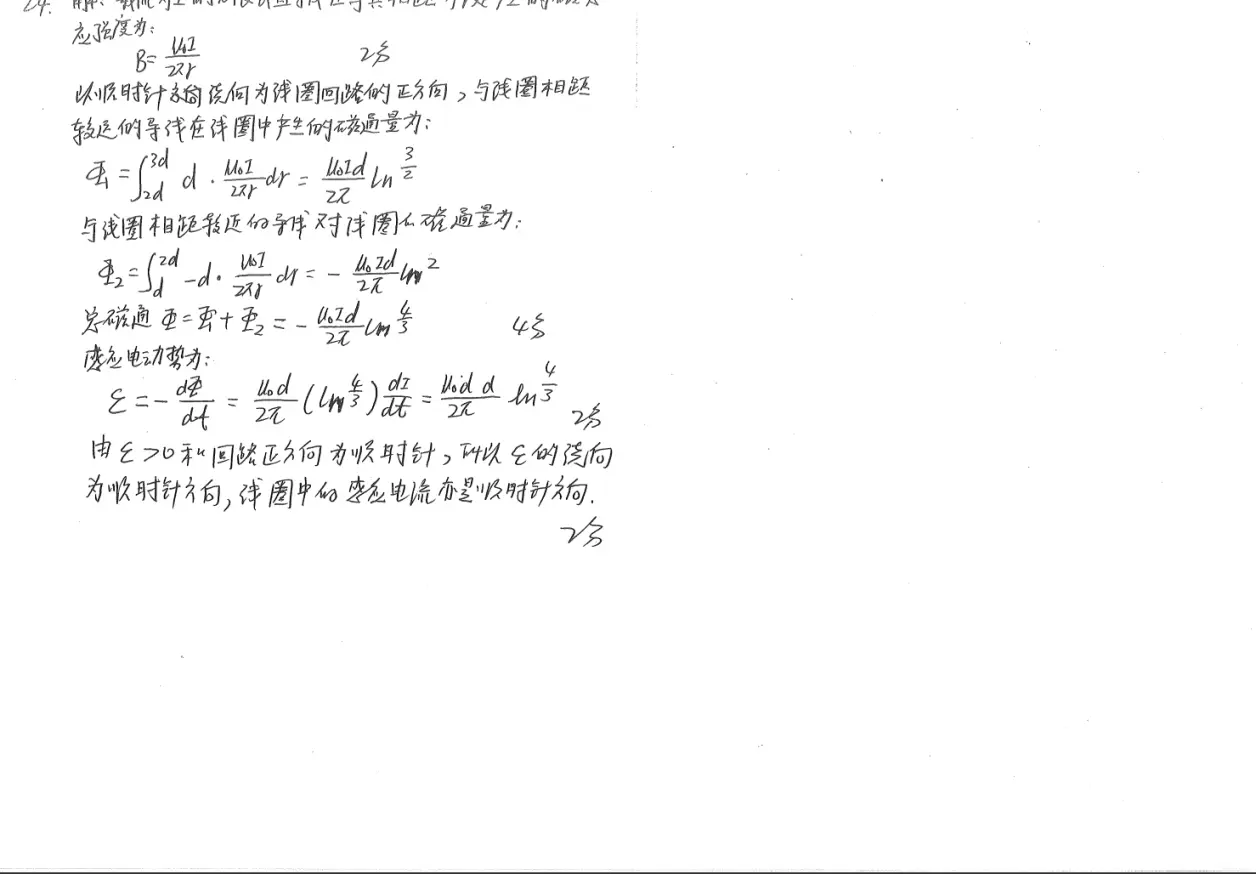 24. 解: 载流为I的无限长直导线在与其相距为r处产生的磁感
应强度为:
B=μ₀I/2πr 2分
以顺时针绕向为线圈回路的正方向,与线圈相距
较远的导线在线圈中产生的磁通量为:
Φ₁=∫_{2d}^{3d} d·μ₀I/2πr dr=μ₀Id/2π ln 3/2
与线圈相距较近的导线对线圈的磁通量为:
Φ₂=∫_{d}^{2d} -d·μ₀I/2πr dr=-μ₀Id/2π ln2
总磁通Φ=Φ₁+Φ₂=-μ₀Id/2π ln 4/3 4分
感应电动势为:
ε=-dΦ/dt=μ₀d/2π(ln 4/3)dI/dt=μ₀d d/2π ln 4/3 2分
由ε>0和回路正方向为顺时针,所以ε的绕向
为顺时针方向,线圈中的感应电流亦是顺时针方向.
2分